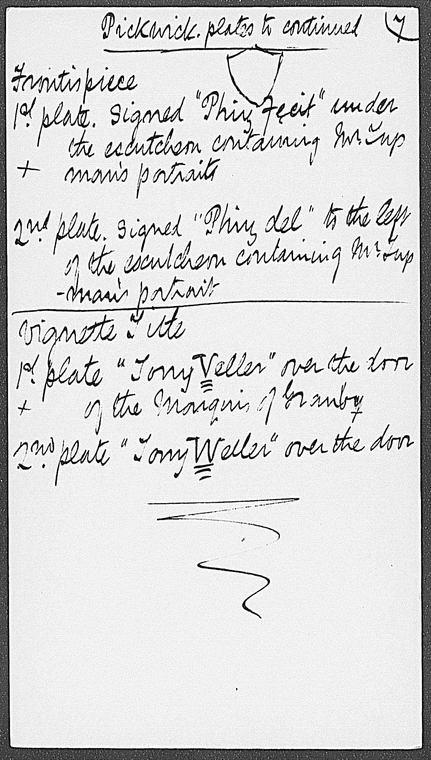 Pickwick. plates to continued
7
Frontispiece
1st plate. Signed "Phiz Fecit" under
the escutcheon containing Mr. Tup
+ man's portraits
2nd plate. Signed "Phiz del" to the left
of the escutcheon containing Mr. Tup
-man's portrait
Vignette Title
1st plate "Tony Veller" over the door
+ of the Marquis of Granby
2nd plate "Tony Weller" over the door